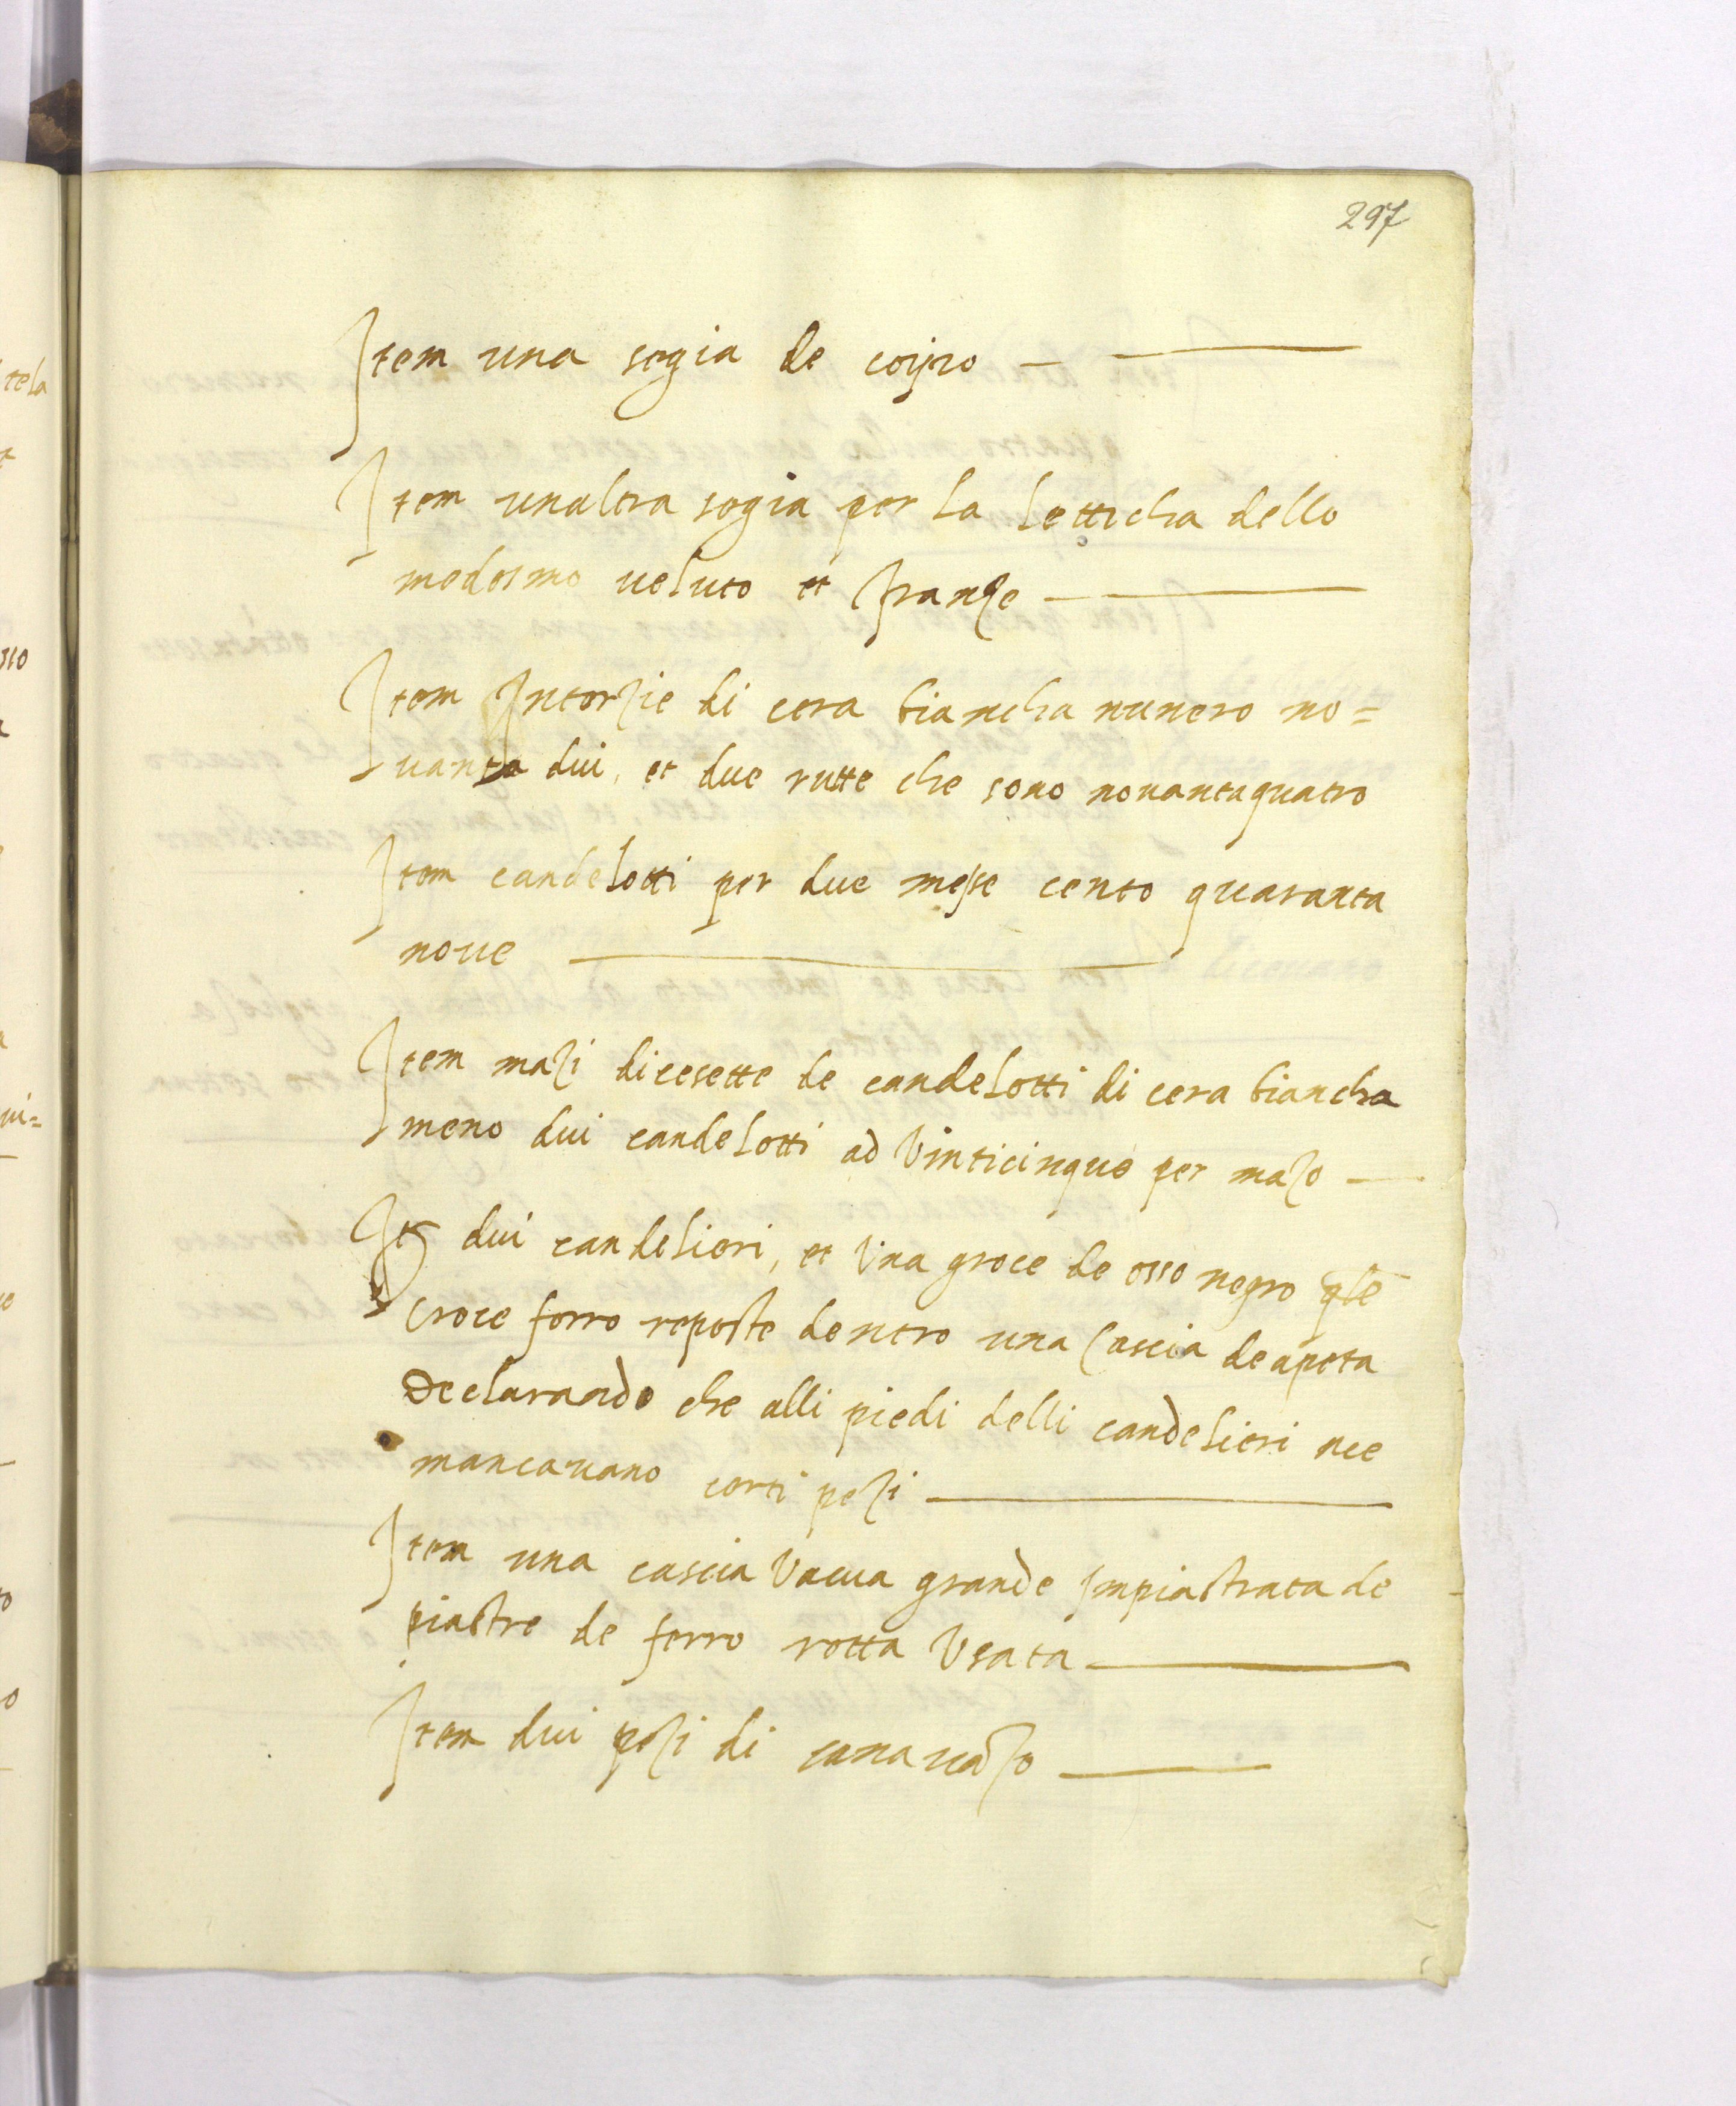 297
Item una segia de coijro
Item unaltra segia per la letticha dello
medesmo veluto et franze
Item Intorzie di cera biancha numero no=
uanta dui, et due rutte che sono nouantaquatro
Item candelotti per due messe cento quaranta
noue
Item mazi dicesette de candelotti di cera biancha
meno dui candelotti ad Vinticinque per mazo
It dui candelieri, et Una groce de osso negro qle
Croce forro reposte dentro una Cascia de apeta
Declarando che alli piedi delli candelieri nce
mancauano certi pezi
Item una cascia Vacua grande Impiastrata de
piastre de ferro rotta Usata
Item dui pezi di canauazo